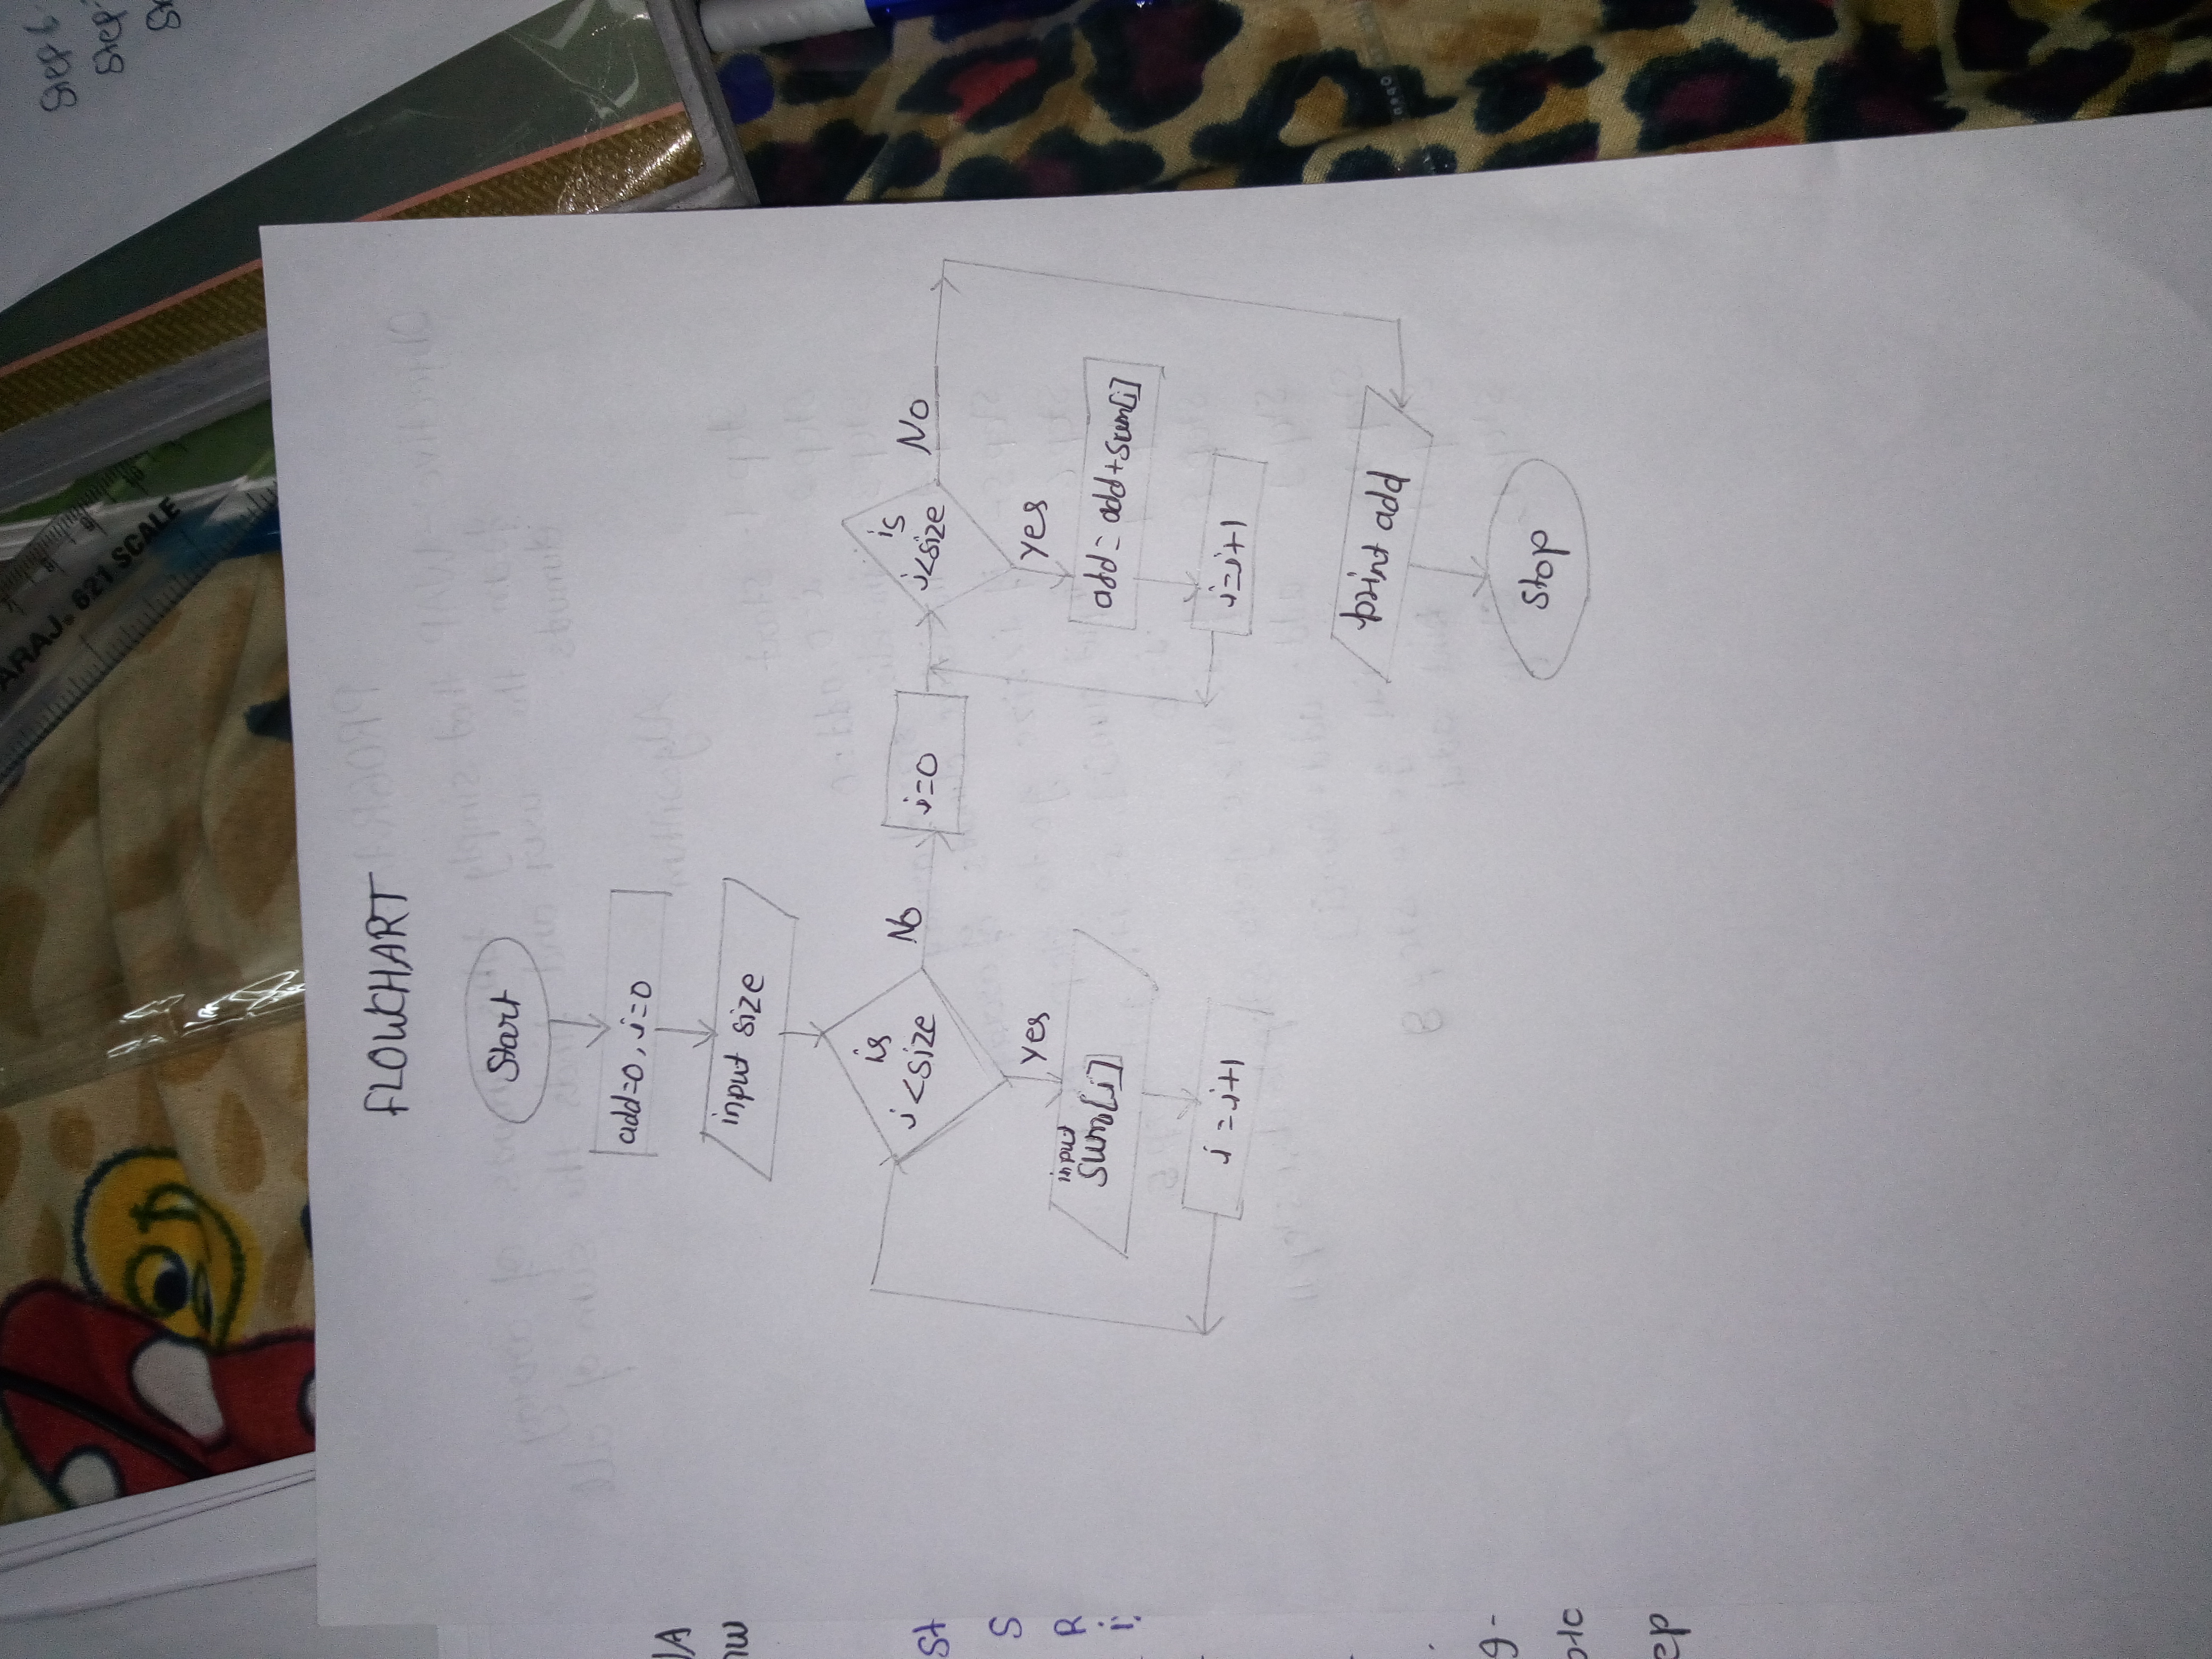 FLOWCHART
Start
add=0, i=0
input size
is
i<size
No
yes
input
sum[i]
i=i+1
i=0
is
i<size
No
yes
add=add+sum[i]
i=i+1
print add
Stop
621 SCALE
Step